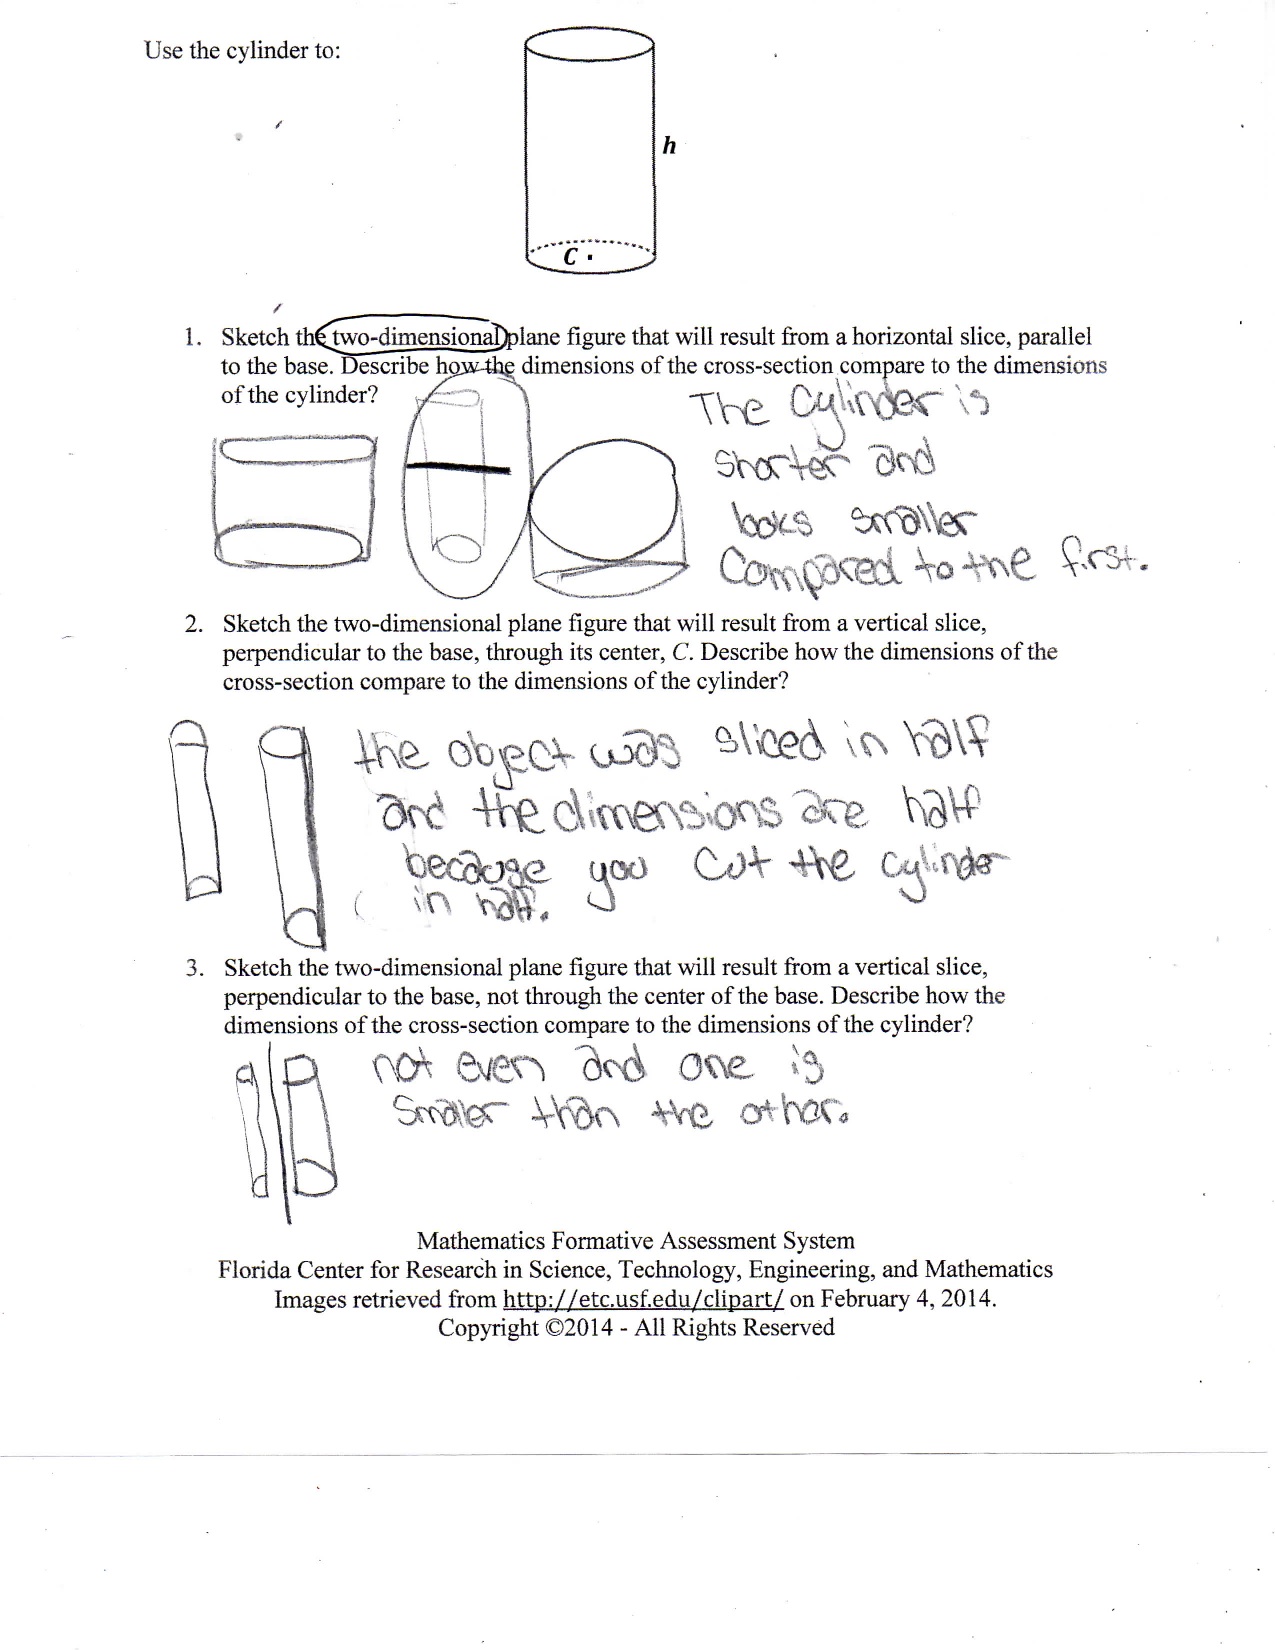 Use the cylinder to:
h
C
1. Sketch the two-dimensional plane figure that will result from a horizontal slice, parallel
to the base. Describe how the dimensions of the cross-section compare to the dimensions
of the cylinder?
The Cylinder is
Shorter and
looks smaller
Compared to the first.
2. Sketch the two-dimensional plane figure that will result from a vertical slice,
perpendicular to the base, through its center, C. Describe how the dimensions of the
cross-section compare to the dimensions of the cylinder?
the object was sliced in half
and the dimensions are half
because you cut the cylinder
in half.
3. Sketch the two-dimensional plane figure that will result from a vertical slice,
perpendicular to the base, not through the center of the base. Describe how the
dimensions of the cross-section compare to the dimensions of the cylinder?
not even and one is
Smaller than the other.
Mathematics Formative Assessment System
Florida Center for Research in Science, Technology, Engineering, and Mathematics
Images retrieved from http://etc.usf.edu/clipart/ on February 4, 2014.
Copyright ©2014 - All Rights Reserved